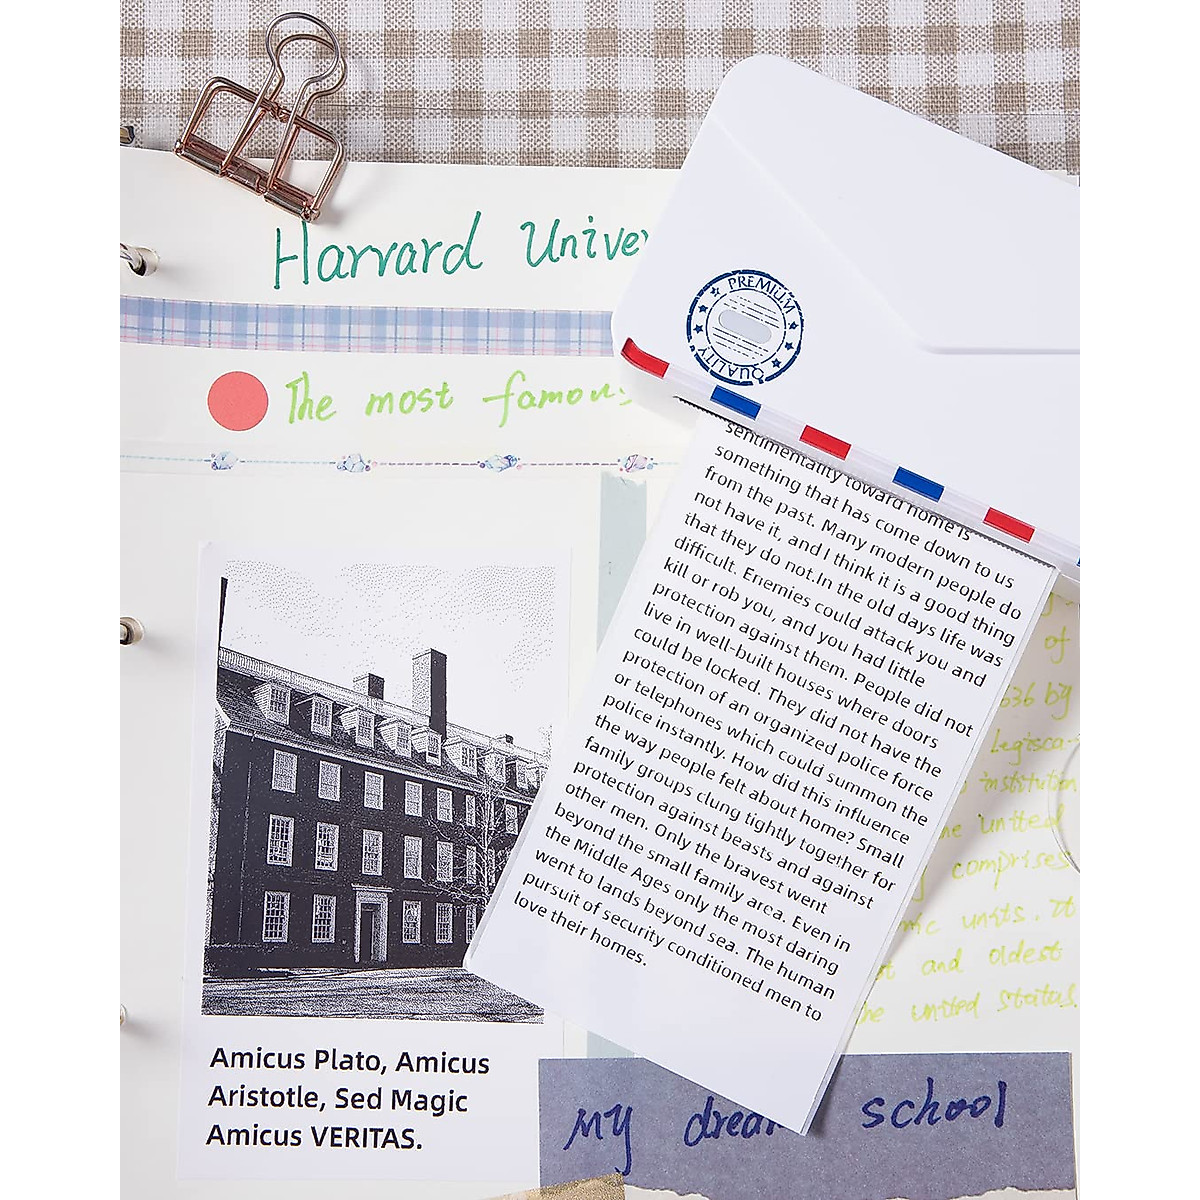 Harvard Unive
PREMIUM
QUALITY
The most famous
sentimentality toward home is
something that has come down to us
from the past. Many modern people do
not have it, and I think it is a good thing
that they do not.In the old days life was
difficult. Enemies could attack you and
kill or rob you, and you had little
protection against them. People did not
live in well-built houses where doors
could be locked. They did not have the
protection of an organized police force
or telephones which could summon the
police instantly. How did this influence
the way people felt about home? Small
family groups clung tightly together for
protection against beasts and against
other men. Only the bravest went
beyond the small family area. Even in
the Middle Ages only the most daring
went to lands beyond sea. The human
pursuit of security conditioned men to
love their homes.
of
636 by
Legisca-
institution
the untted
comprises
mic units. It
st and oldest
the united status
Amicus Plato, Amicus
Aristotle, Sed Magic
Amicus VERITAS.
My dream school